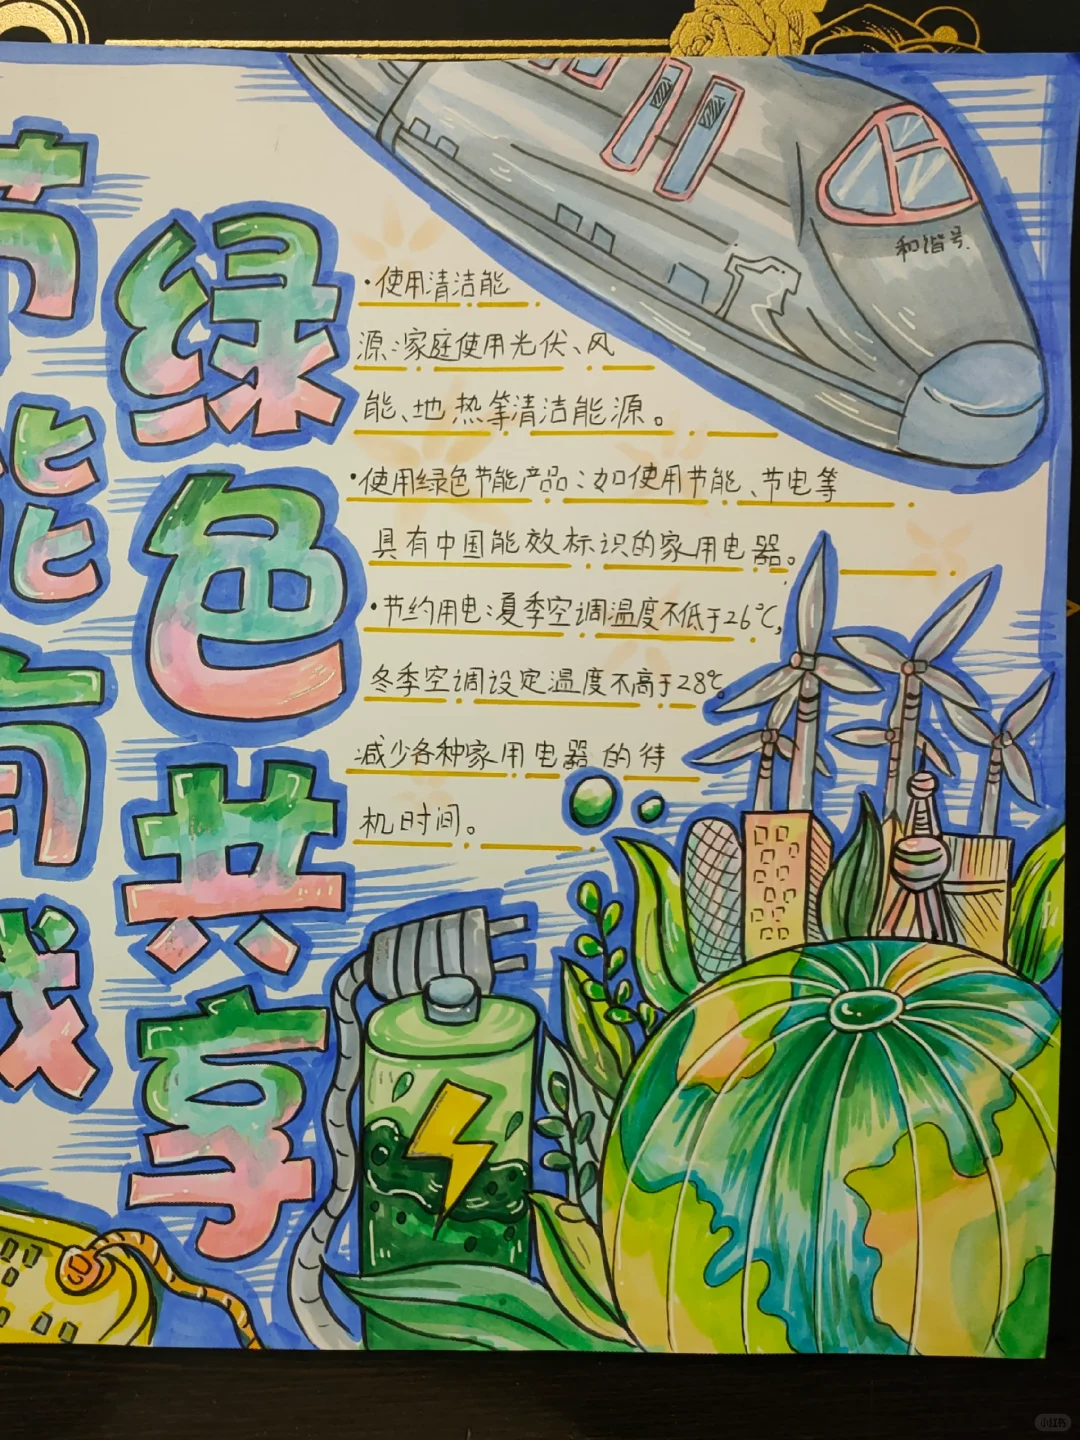 节能有我
绿色共享
和谐号
·使用清洁能
源:家庭使用光伏、风
能、地热等清洁能源。
·使用绿色节能产品:如使用节能、节电等
具有中国能效标识的家用电器。
·节约用电:夏季空调温度不低于26℃,
冬季空调设定温度不高于28℃。
减少各种家用电器的待
机时间。
小红书